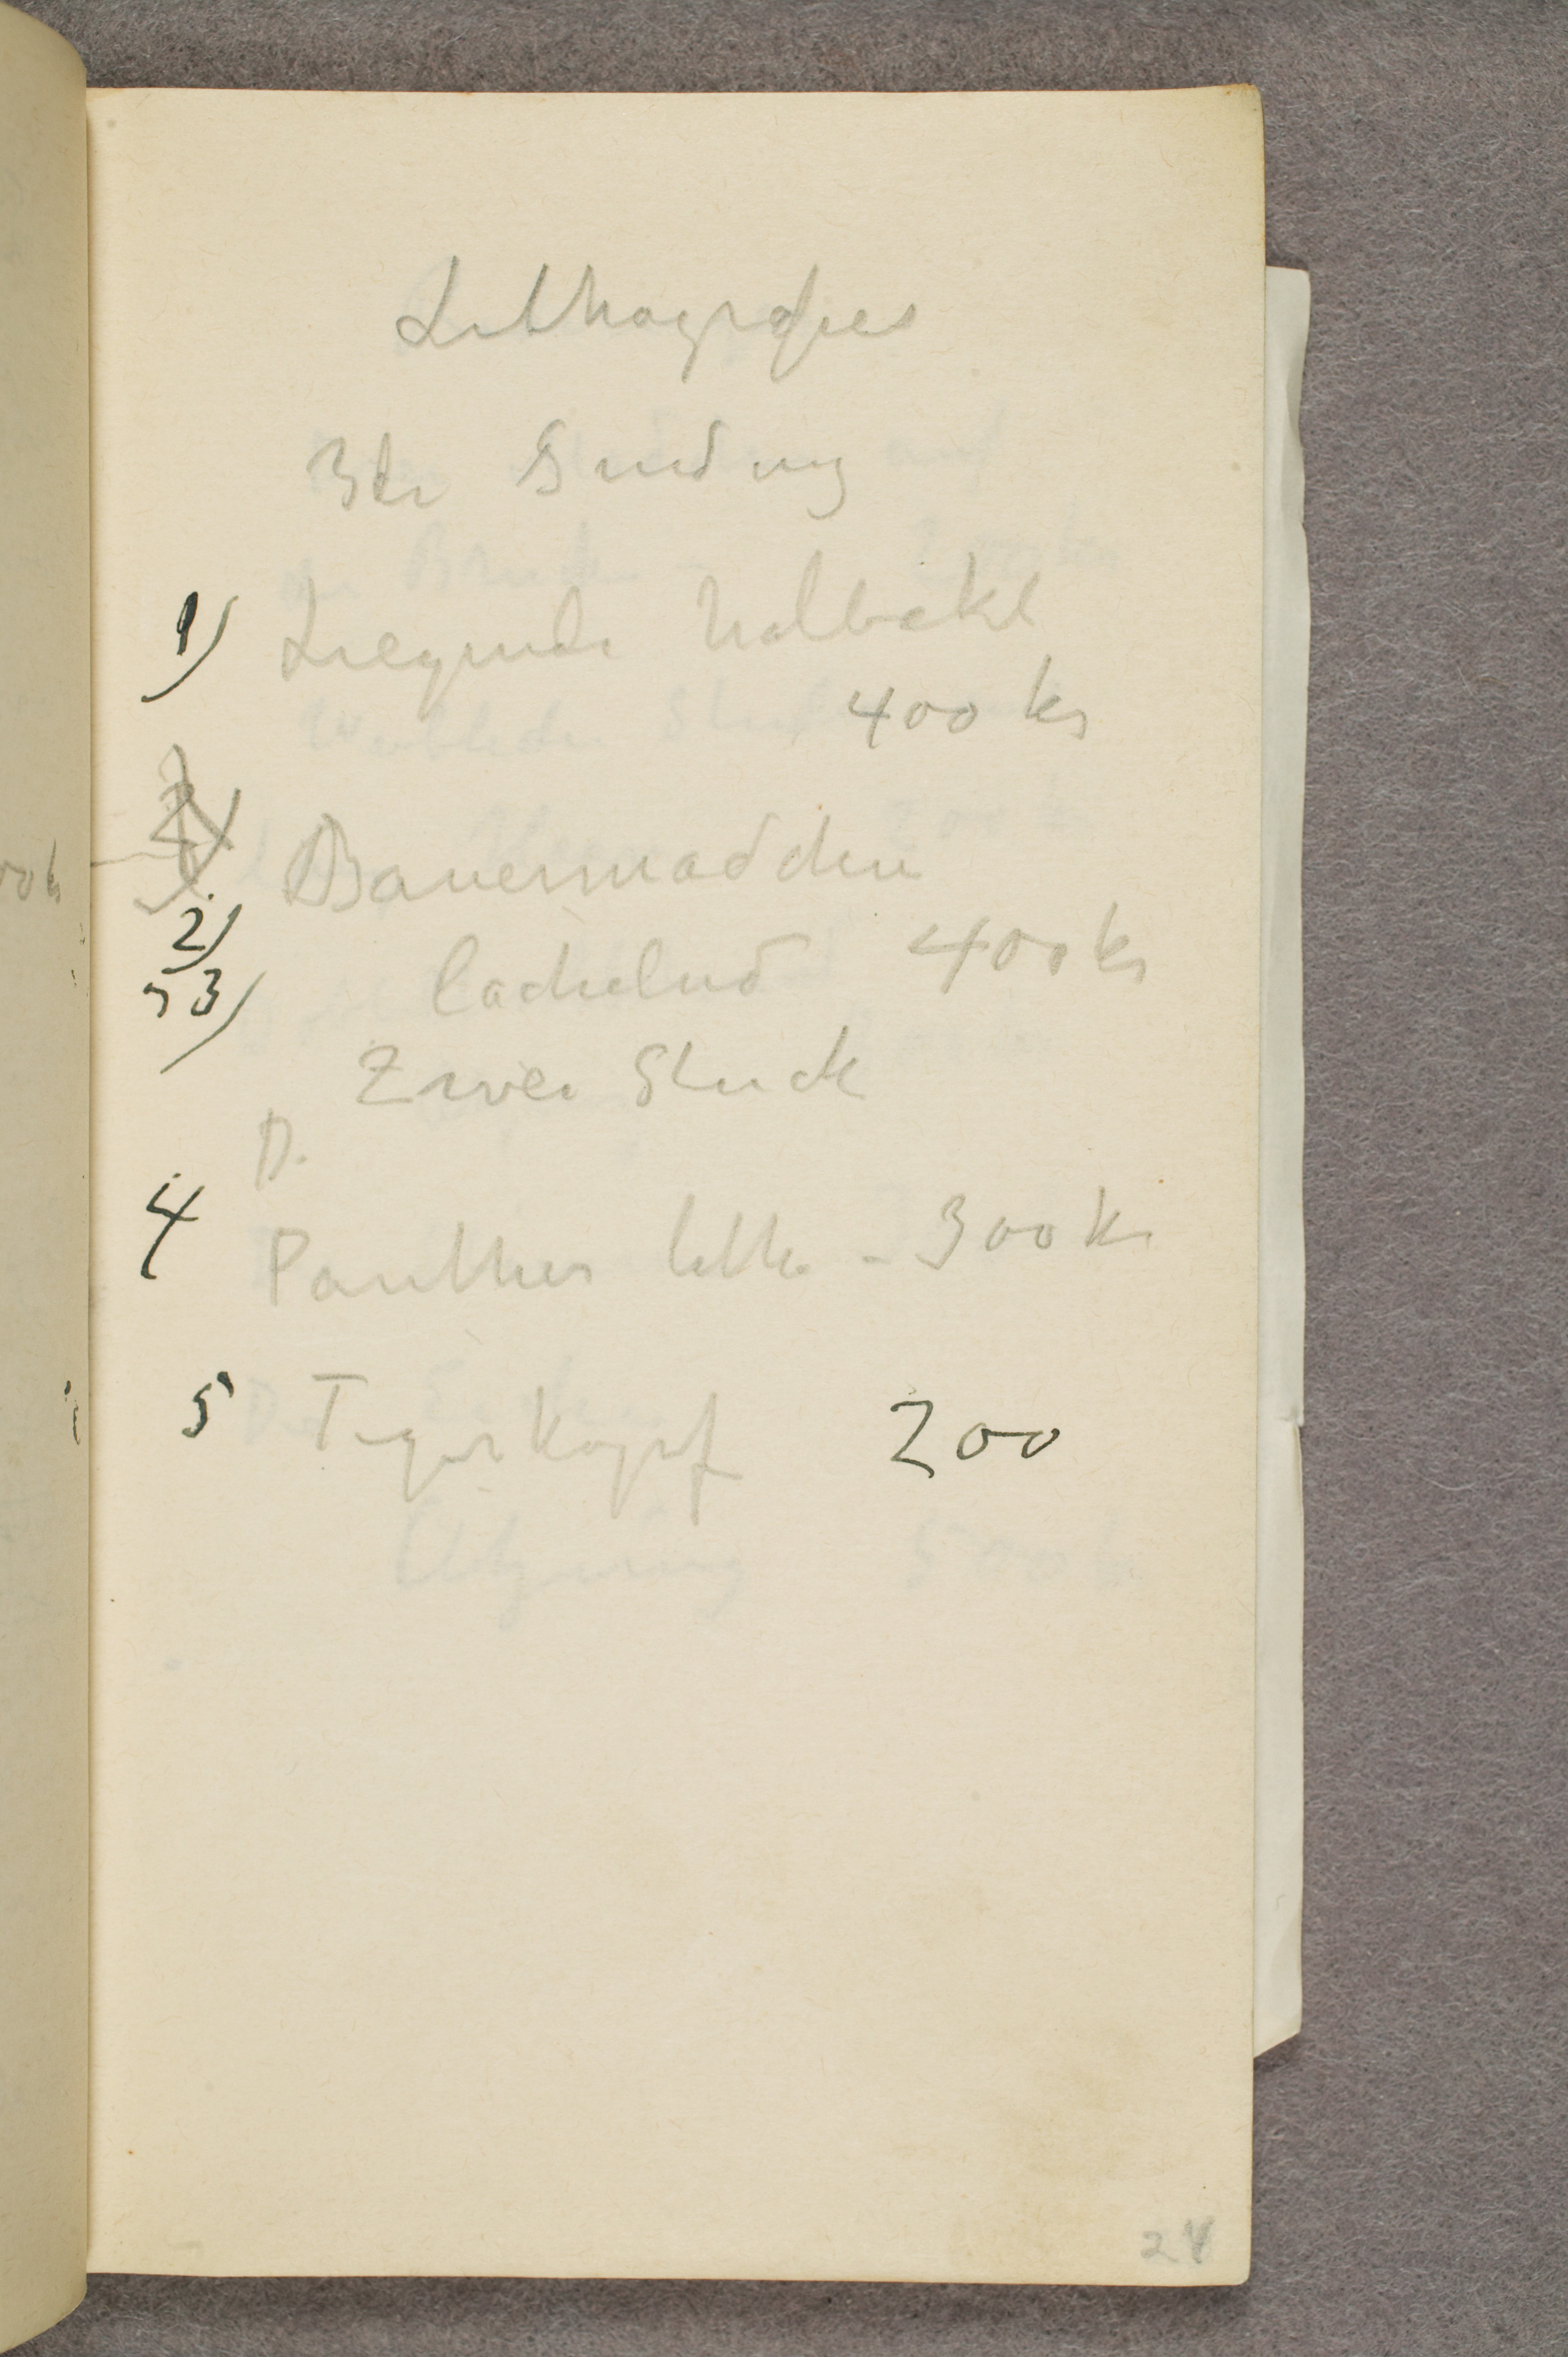 Lithografies
3te Sendung
1) Liegende halbakt
400 kr
Bauermadchen
2)
lachelnd 400 kr
3)
Zwei Stuck
D.
4 Panther lith – 300 kr
5 Tigerkopf 200
24